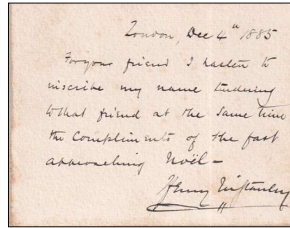 London, Dec 4th 1885
For your friend I hasten to
inscribe my name tendering
to that friend at the same time
the Compliments of the fast
approaching Noël -